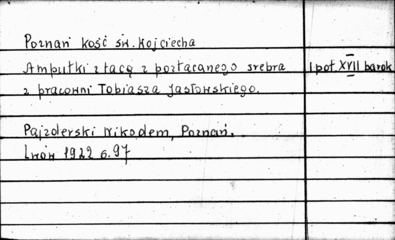 Poznań kość św. Wojciecha
Ampułki z tacą z pozłacanego srebra I poł. XVII barok
z pracowni Tobiasza Jasłowskiego.
Pajzderski Nikodem, Poznań.
Lwów 1922 s. 97